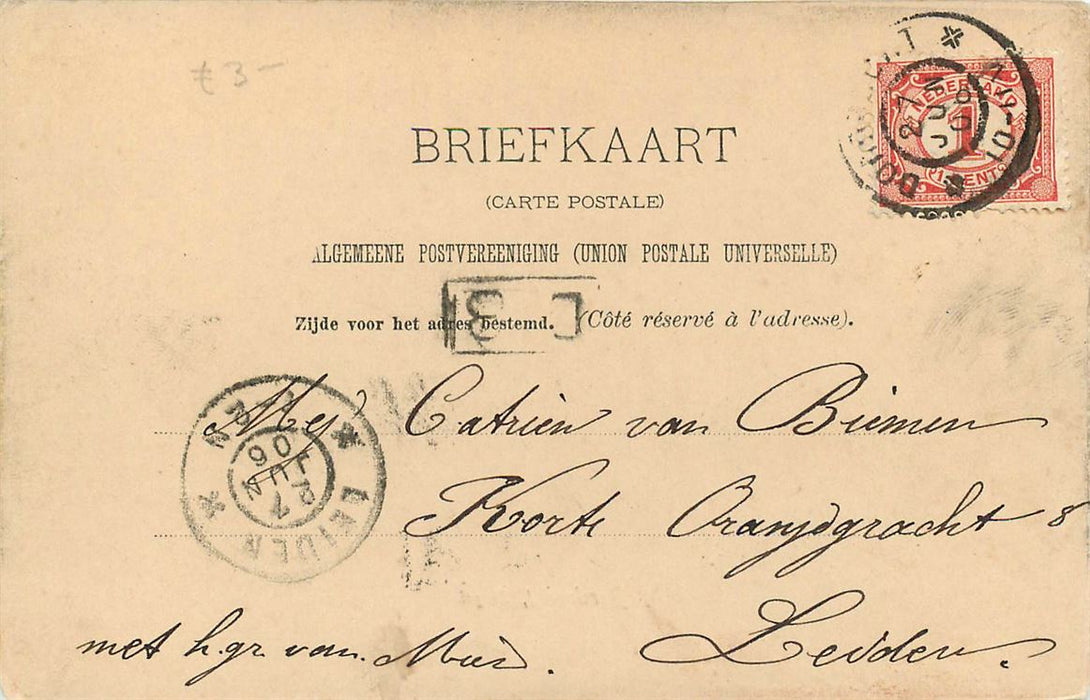 € 3 -
BRIEFKAART
(CARTE POSTALE)
ALGEMEENE POSTVEREENIGING (UNION POSTALE UNIVERSELLE)
Zijde voor het adres bestemd. (Côté réservé à l'adresse).
NEDERLAND
1
1 CENT
27 JUN 06
3
LEIDEN
27 JUN 06
Mej Catrien van Biemen
Korte Oranjegracht 8
Leiden.
met h. gr. van